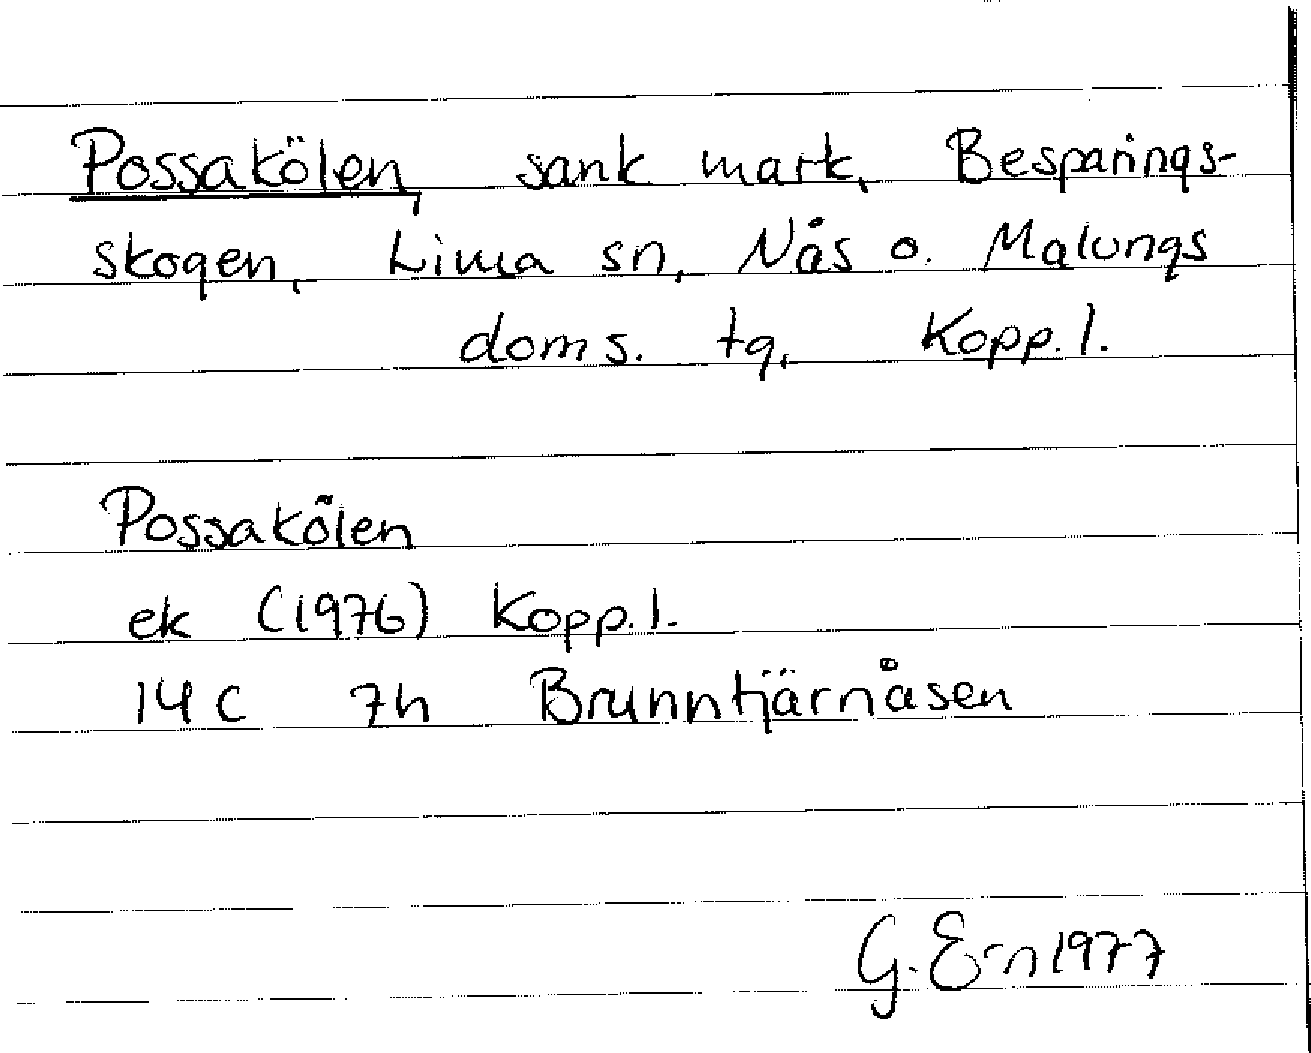 Possakölen, sank mark, Besparings-
skogen, Lima sn, Nås o. Malungs
doms. tg, Kopp. l.
Possakölen
ek (1976) Kopp. l.
14 C 7h Brunntjärnåsen
G. Ern 1977